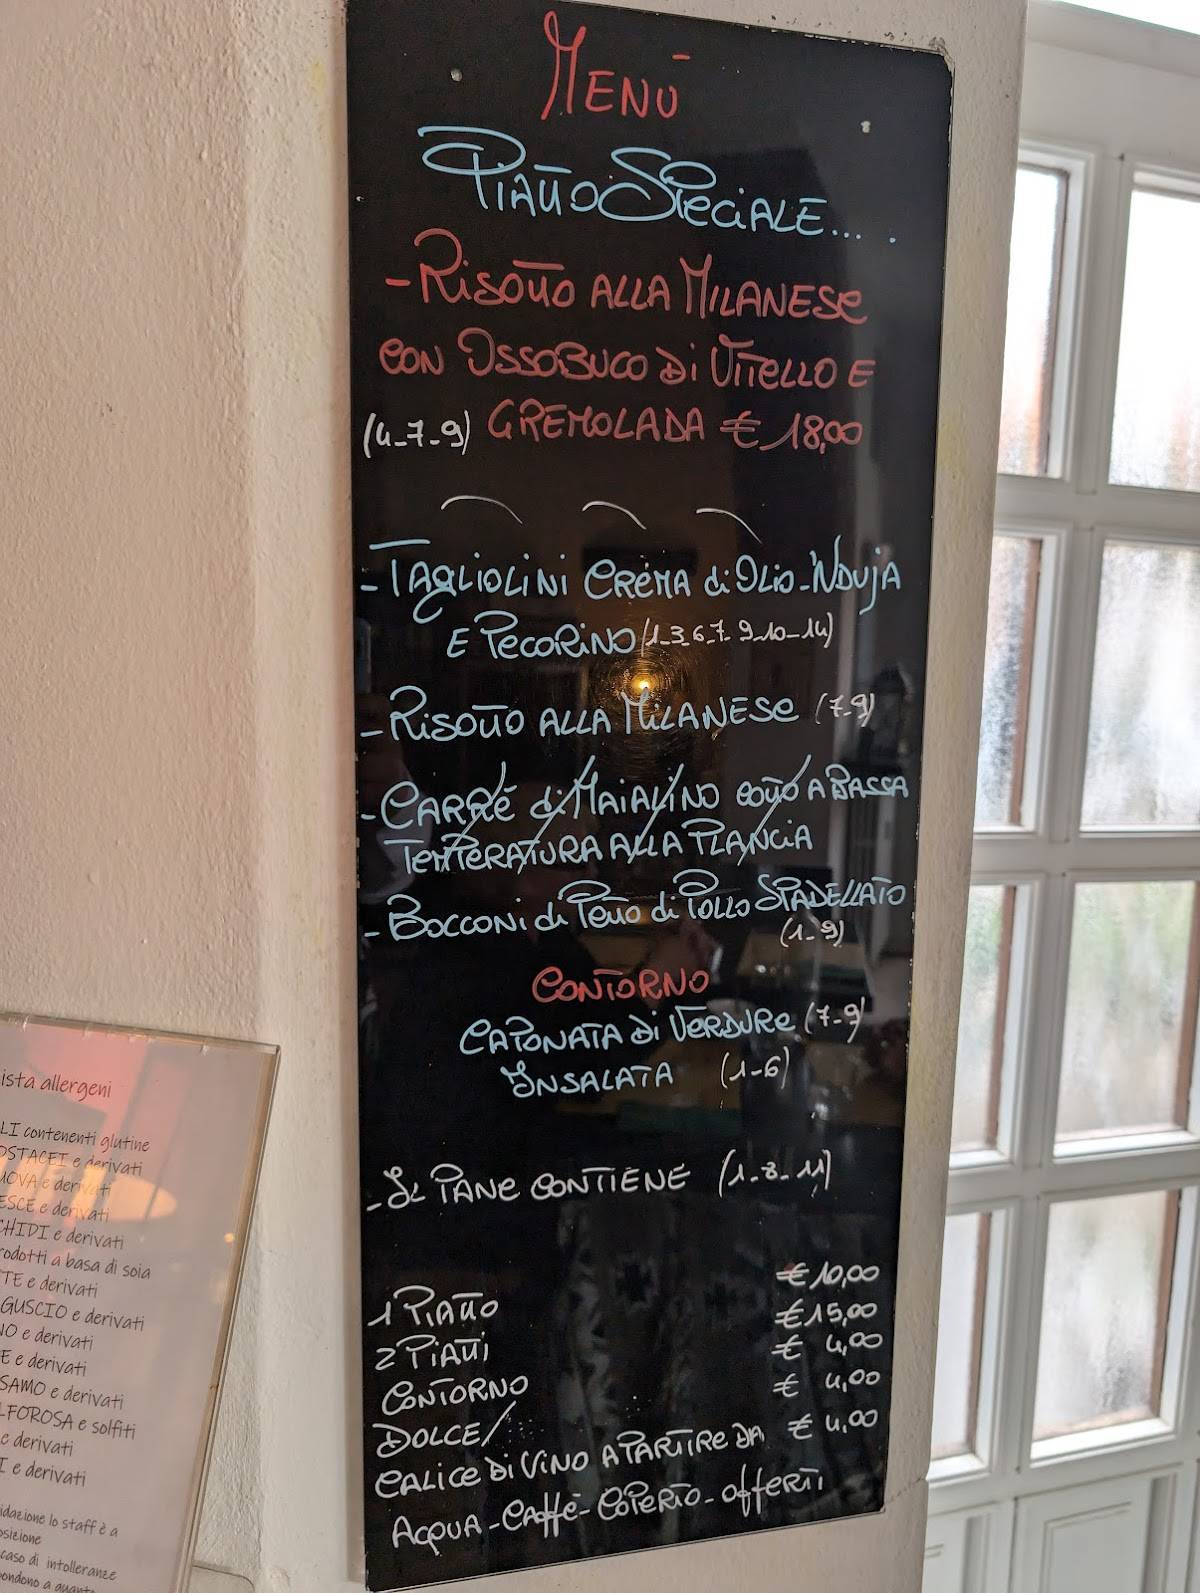 MENÙ
PIATTO SPECIALE.... .
- RISOTTO ALLA MILANESE
CON OSSOBUCO DI VITELLO E
(4-7-9) GREMOLADA € 18,00
- TAGLIOLINI CREMA di OLIO-'NDUJA
E PECORINO (1-3-6-7-9-10-14)
- RISOTTO ALLA MILANESE (7-9)
- CARRÉ di MAIALINO COTTO A BASSA
TEMPERATURA ALLA PLANCIA
- BOCCONI di PETTO di POLLO SPADELLATO
(1-9)
CONTORNO
CAPONATA DI VERDURE (7-9)
INSALATA (1-6)
- IL PANE CONTIENE (1-8-11)
1 PIATTO € 10,00
2 PIATTI € 15,00
CONTORNO € 4,00
DOLCE/ € 4,00
CALICE DI VINO A PARTIRE DA € 4,00
ACQUA - CAFFÈ - COPERTO - OFFERTI
ista allergeni
LI contenenti glutine
OSTACEI e derivati
UOVA e derivati
ESCE e derivati
CHIDI e derivati
rodotti a basa di soia
TTE e derivati
GUSCIO e derivati
NO e derivati
E e derivati
SAMO e derivati
LFOROSA e solfiti
e derivati
I e derivati
idazione lo staff è a
osizione
caso di intolleranze
pondono a quanto